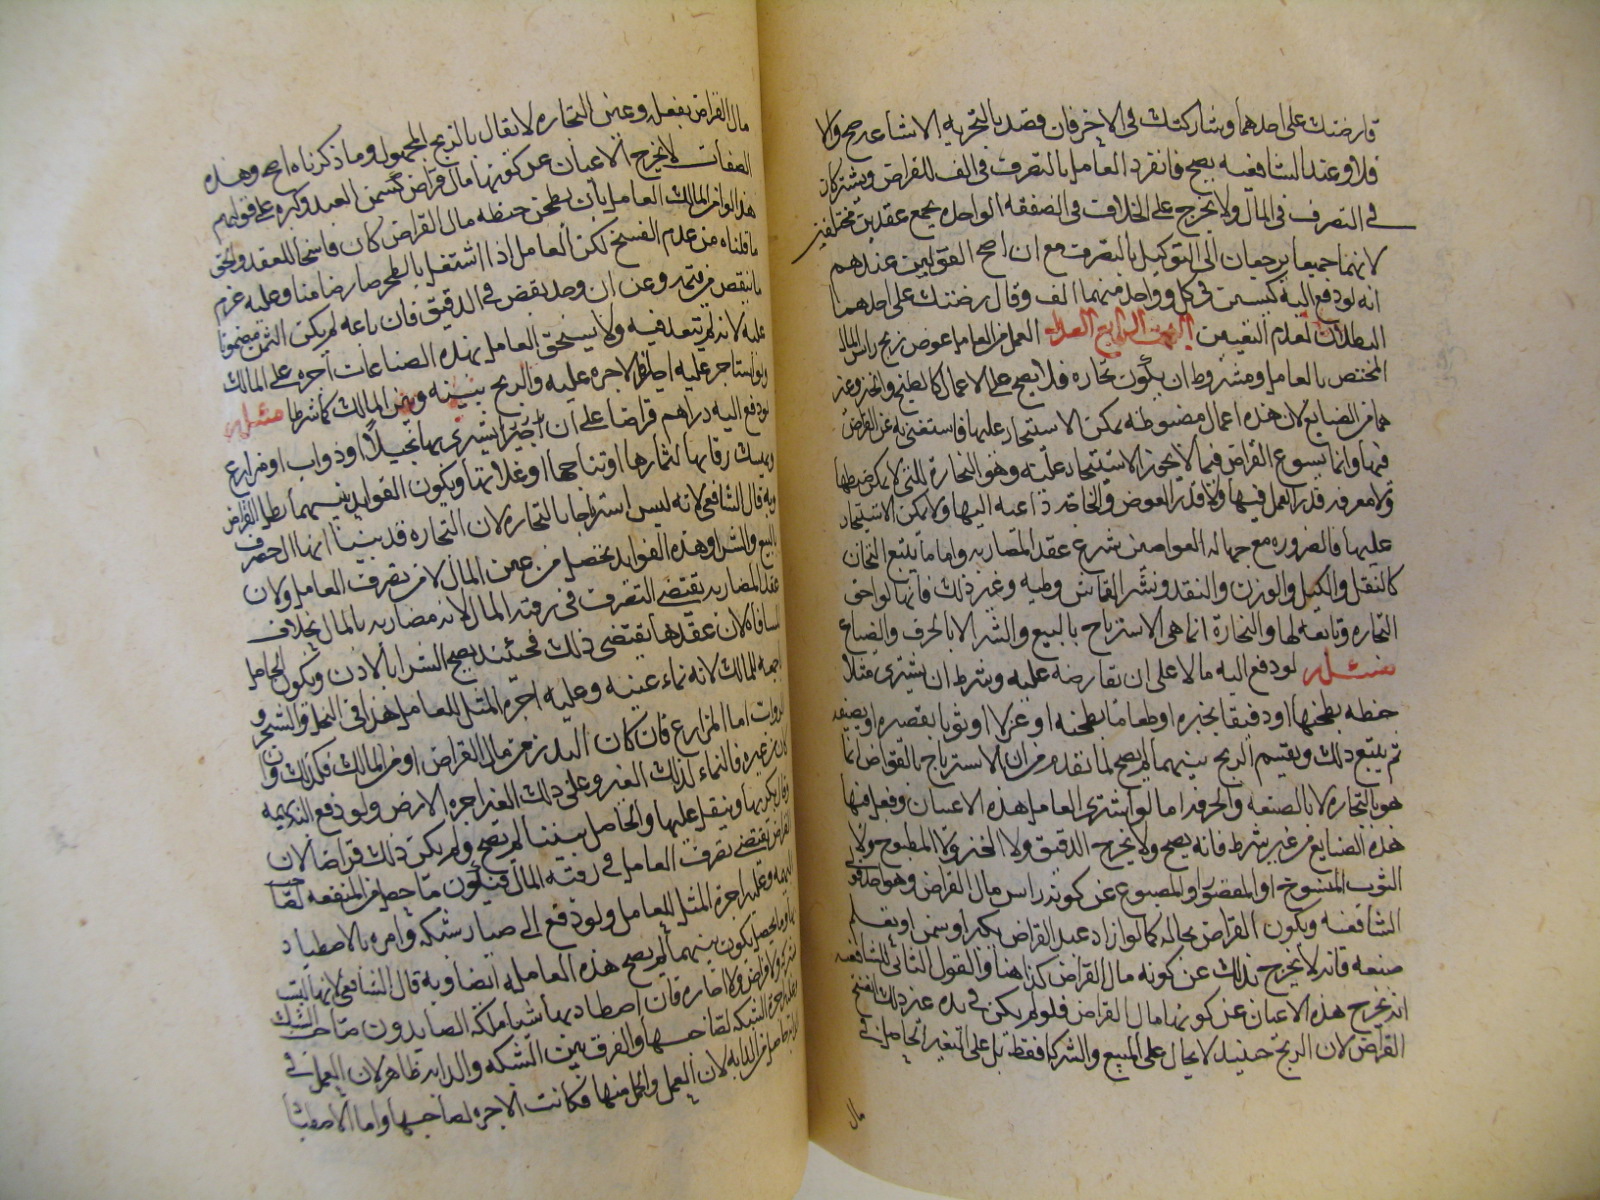 قارضتك على احدهما وشاركتك فى الاخر فان قصد بالتجربه الاشاعه صح والا
فلا وعند الشافعيه يصح فانفرد العامل بالتصرف فى الف للقراض ويشتركان
فى التصرف فى المال ولا يخرج على الخلاف فى الصفقه الواحده يجمع عقدين مختلفين
لانهما جميعا يرجعان الى التوكيل بالتصرف مع ان اصح القولين عندهم
انه لو دفع اليه كيسين فى كل واحد منهما الف وقال قارضتك على احدهما
البطلان لعدم التعيين البحث الرابع العمل العمل من العامل عوض ربح راس المال
المختص بالعامل ومشروط ان يكون تجاره فلا يصح على الاعمال كالطبخ والخبز وغير
هما من الصنايع لان هذه اعمال مضبوطه يمكن الاستيجار عليها فاستغنى به عن القراض
فيها وانما يسوغ القراض فيما لا يجوز الاستيجار عليه وهو التجارة التى لا يمكن ضبطها
ولا معرفه قدر العمل فيها ولا قدر العوض والحاجه داعيه اليها ولا يمكن الاستيجار
عليها فالضروره مع جهاله العوضين شرع عقد المضاربه واما ما يتبع التجاره
كالنقل والكيل والوزن والنقد ونشر القماش وطيه وغير ذلك فانها لواحق
التجاره وتابعه لها والتجارة انما هى الاسترباح بالبيع والشرا لا بالحرف والصنايع
مسئله لو دفع اليه مالا على ان يقارضه عليه وشرط ان يشترى مثلا
حنطه يطحنها او دقيقا يخبزه او طعاما يطحنه او غزلا او ثوبا يقصره او يصبغه
ثم يبيع ذلك ويقسم الربح بينهما لم يصح لما تقدم من ان الاسترباح بالقراض انما
هو بالتجاره لا بالصنعه والحرفه اما لو اشترى العامل هذه الاعيان وفعل فيها
هذه الصنايع من غير شرط فانه يصح ولا يخرج الدقيق ولا الخبز ولا المطبوخ ولا
الثوب المنسوخ او المقصور او المصبوغ عن كونه راس مال القراض وهو احد قولى
الشافعيه ويكون القراض بحاله كما لو زاد عبد القراض بكبر او سمن او تعلم
صنعه فانه لا يخرج بذلك عن كونه مال القراض كذا هنا والقول الثانى للشافعيه
انه تخرج هذه الاعيان عن كونها مال القراض فلو لم يكن فى يده غير ذلك انفسخ
القراض لان الربح حينيذ لا يحال على البيع والشرا فقط بل على التغير الحاصل فى
مال
مال القراض بفعله وعين التجاره لا يقابل بالربح المجهول وما ذكرناه اصح وهذه
الصفات لا تخرج الاعيان عن كونها مال قراض كسمن العبد وكبره على قولهم
هذا لو امر المالك العامل بان يطحن حنطه مال القراض كان فاسخا للعقد والحق
ما قلناه من عدم الفسخ لكن العامل اذا اشتغل بالطحن صار ضامنا وعليه غرم
ما ينقص من ثمنه وعن ان وجد نقص فى الدقيق فان باعه لم يكن الثمن مضمونا
عليه لانه لم يتعد فيه ولا يستحق العامل بهذه الصناعات اجره على المالك
ولو استاجر عليه اجيرا فالاجره عليه والربح بينه وبين المالك كما شرطا مسئله
لو دفع اليه دراهم قراضا على ان يشترى بها نخيلا او دواب او مزارع
ويمسك رقابها لثمارها او نتاجها او غلاتها ويكون الفوايد بينهما بطل القراض
وبه قال الشافعى لانه ليس استرباحا بالتجاره لان التجاره قد بينا انها التصرف
بالبيع والشرا وهذه الفوايد تحصل من عين المال لا من تصرف العامل ولان
عقد المضاربه يقتضى التصرف فى رقبه المال لانه مضاربه بالمال بخلاف
المساقاه لان عقدها يقتضى ذلك فحينئذ يصح الشرا بالاذن ويكون الحاصل
اجمعه للمالك لانه نماء عينه وعليه اجره المثل للعامل هذا فى النخل والشجر و
الدواب اما المزارع فان كان البذر من مال القراض او من المالك فكذلك وان
كان من غيره فالنماء لذلك الغير وعلى ذلك الغير اجره الارض ولو دفع اليه بهيمه
وقال يكريها وينقل عليها والحاصل بيننا لم يصح ولم يكن ذلك قراضا لان
القراض يقتضى تصرف العامل فى رقبه المال فيكون ما حصل من المنفعه لصاحب
البهيمه وعليه اجرة المثل للعامل ولو دفع الى صياد شبكه وامره بالاصطياد
بها وما يحصل يكون بينهما لم يصح هذه المعامله ايضا وبه قال الشافعى لانها ليست
شركه ولا قراض ولا اجاره فان اصطاد بها شيا ملكه الصايد دون صاحب الشبكه
وعليه اجرة الشبكه لصاحبها والفرق بين الشبكه والدابه ظاهر لان العمل فى
الدابه حاصل من الدابه لان العمل والحمل منها فكانت الاجره لصاحبها واما الاصطياد